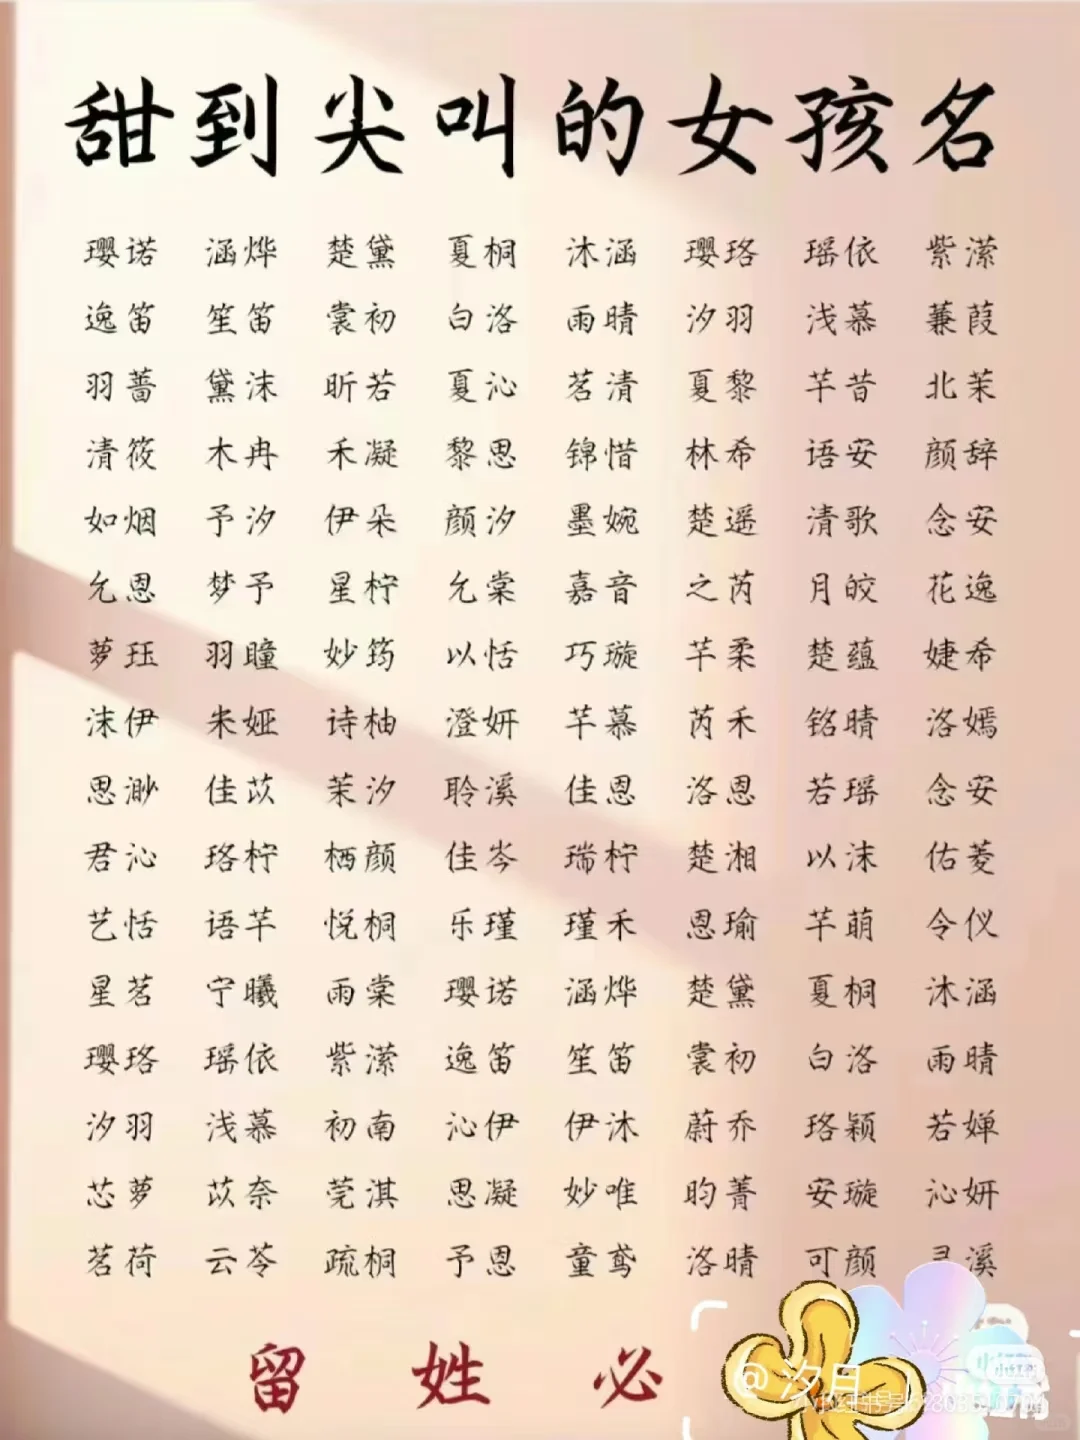 甜到尖叫的女孩名
璎诺 涵烨 楚黛 夏桐 沐涵 璎珞 瑶依 紫潆
逸笛 笙笛 裳初 白洛 雨晴 汐羽 浅慕 蒹葭
羽蔷 黛沫 昕若 夏沁 茗清 夏黎 芊昔 北茉
清筱 木冉 禾凝 黎思 锦惜 林希 语安 颜辞
如烟 予汐 伊朵 颜汐 墨婉 楚遥 清歌 念安
允恩 梦予 星柠 允棠 嘉音 之芮 月皎 花逸
萝珏 羽瞳 妙筠 以恬 巧璇 芊柔 楚蕴 婕希
沫伊 朱娅 诗柚 澄妍 芊慕 芮禾 铭晴 洛嫣
思渺 佳苡 茉汐 聆溪 佳恩 洛恩 若瑶 念安
君沁 珞柠 栖颜 佳岑 瑞柠 楚湘 以沫 佑菱
艺恬 语芊 悦桐 乐瑾 瑾禾 恩瑜 芊萌 令仪
星茗 宁曦 雨棠 璎诺 涵烨 楚黛 夏桐 沐涵
璎珞 瑶依 紫潆 逸笛 笙笛 裳初 白洛 雨晴
汐羽 浅慕 初南 沁伊 伊沐 蔚乔 珞颖 若婵
芯萝 苡奈 莞淇 思凝 妙唯 昀菁 安璇 沁妍
茗荷 云苓 疏桐 予恩 童鸢 洛晴 可颜 灵溪
留姓必
@汐月
小红书